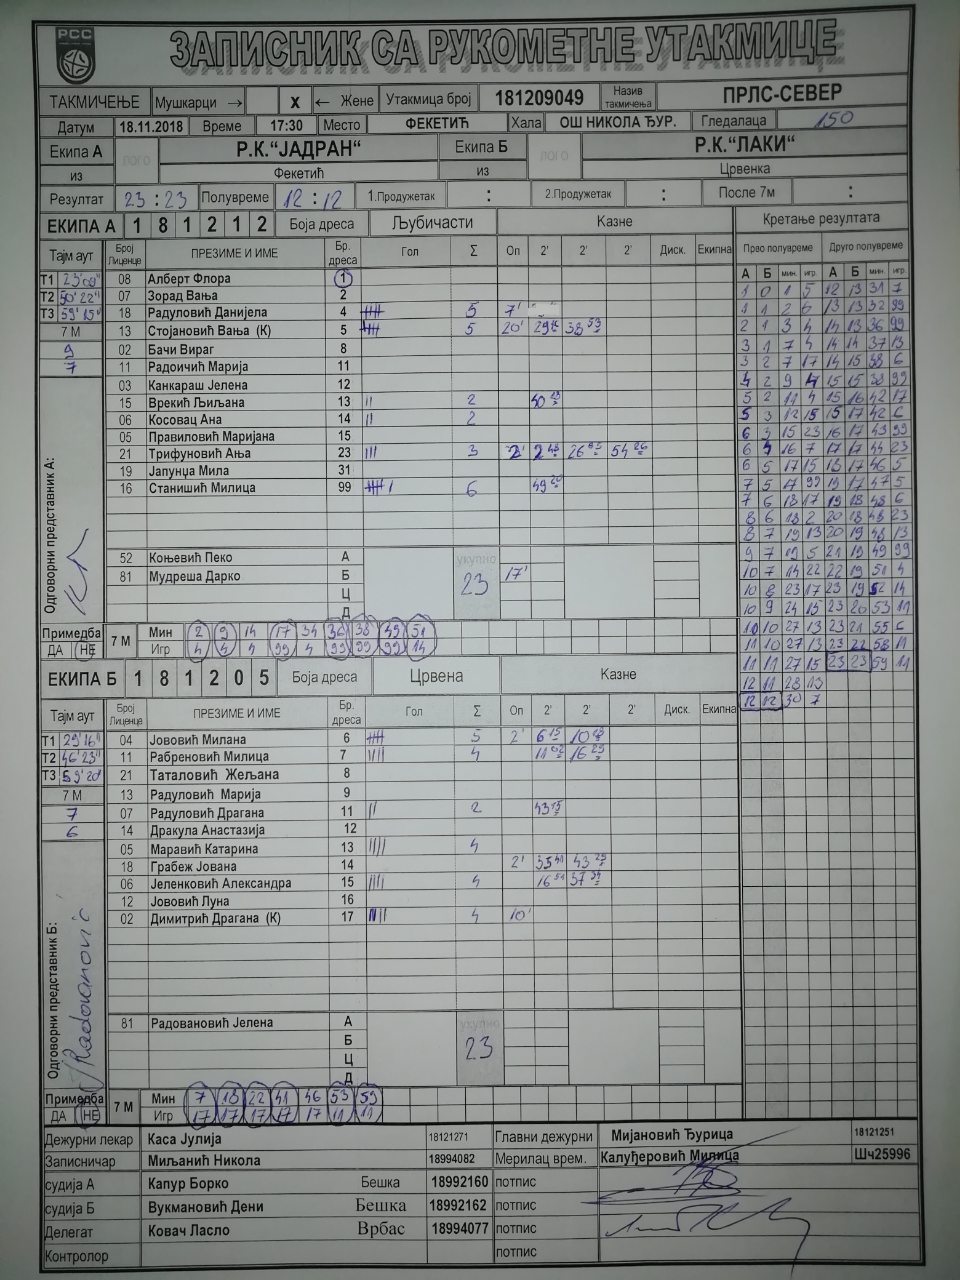 РСС
ЗАПИСНИК СА РУКОМЕТНЕ УТАКМИЦЕ
ТАКМИЧЕЊЕ Мушкарци → X ← Жене Утакмица број 181209049 Назив такмичења ПРЛС-СЕВЕР
Датум 18.11.2018 Време 17:30 Место ФЕКЕТИЋ Хала ОШ НИКОЛА ЂУР. Гледалаца 150
Екипа А ЛОГО Р.К.“ЈАДРАН“ Екипа Б ЛОГО Р.К.“ЛАКИ“
из Фекетић из Црвенка
Резултат 23 : 23 Полувреме 12 : 12 1.Продужетак : 2.Продужетак : После 7м :
ЕКИПА А 1 8 1 2 1 2 Боја дреса Љубичасти Казне Кретање резултата
Тајм аут Број Лиценце ПРЕЗИМЕ И ИМЕ Бр. дреса Гол Σ Оп 2' 2' 2' Диск. Екипна Прво полувреме Друго полувреме
А Б мин. игр. А Б мин. игр.
Т1 23'00" 08 Алберт Флора 1
Т2 50'22" 07 Зорад Вања 2
Т3 59'15" 18 Радуловић Данијела 4 5 7'
7 М 13 Стојановић Вања (К) 5 5 20' 38 53
9 02 Бачи Вираг 8
7 11 Радоичић Марија 11
03 Канкараш Јелена 12
15 Врекић Љиљана 13 II 2
06 Косовац Ана 14 II 2
05 Правиловић Маријана 15
21 Трифуновић Ања 23 III 3 2' 54 26
19 Јапунџа Мила 31
16 Станишић Милица 99 6 49 20
Одговорни представник А:
52 Коњевић Пеко А укупно 23
81 Мудреша Дарко Б 17'
Ц
Д
Примедба 7 М Мин 2 9 14 17 34 36 38 49 51
ДА НЕ Игр 4 4 4 99 4 99 99 99 14
1 0 1 5 12 13 31 7
1 1 2 6 13 13 32 99
2 1 3 4 14 13 36 99
3 1 7 4 14 14 37 13
3 2 7 17 14 15 38 6
4 2 9 4 15 15 38 99
5 2 11 4 15 16 42 17
5 3 12 15 15 17 42 6
6 3 15 23 16 17 43 99
6 4 16 7 17 17 44 23
6 5 17 15 18 17 46 5
7 5 17 99 19 17 47 5
7 6 18 17 19 18 48 6
8 6 18 2 20 18 48 23
8 7 19 13 20 19 48 13
9 7 19 5 21 19 49 99
10 7 14 22 22 19 51 4
10 8 23 17 23 19 52 14
10 9 24 15 23 20 53 11
10 10 27 13 23 21 55 6
11 10 27 13 23 22 58 11
11 11 27 15 23 23 59 11
12 11 28 13
12 12 30 7
ЕКИПА Б 1 8 1 2 0 5 Боја дреса Црвена Казне
Тајм аут Број Лиценце ПРЕЗИМЕ И ИМЕ Бр. дреса Гол Σ Оп 2' 2' 2' Диск. Екипна
Т1 29'16" 04 Јововић Милана 6 5 2' 6 15
Т2 46'23" 11 Рабреновић Милица 7 IIII 4 11 02 16 25
Т3 59'20" 21 Таталовић Жељана 8
7 М 13 Радуловић Марија 9
7 07 Радуловић Драгана 11 II 2 43 15
6 14 Дракула Анастазија 12
05 Маравић Катарина 13 IIII 4
18 Грабеж Јована 14 2' 35 41 43 25
06 Јеленковић Александра 15 IIII 4 16 51 37 34
12 Јововић Луна 16
02 Димитрић Драгана (К) 17 IIII 4 10'
Одговорни представник Б:
Radovanović
81 Радовановић Јелена А укупно 23
Б
Ц
Д
Примедба 7 М Мин 7 18 22 41 46 53 59
ДА НЕ Игр 17 17 17 17 17 11 11
Дежурни лекар Каса Јулија 18121271 Главни дежурни Мијановић Ђурица 18121251
Записничар Миљанић Никола 18994082 Мерилац врем. Калуђеровић Милица Шч25996
судија А Капур Борко Бешка 18992160 потпис
судија Б Вукмановић Дени Бешка 18992162 потпис
Делегат Ковач Ласло Врбас 18994077 потпис
Контролор потпис